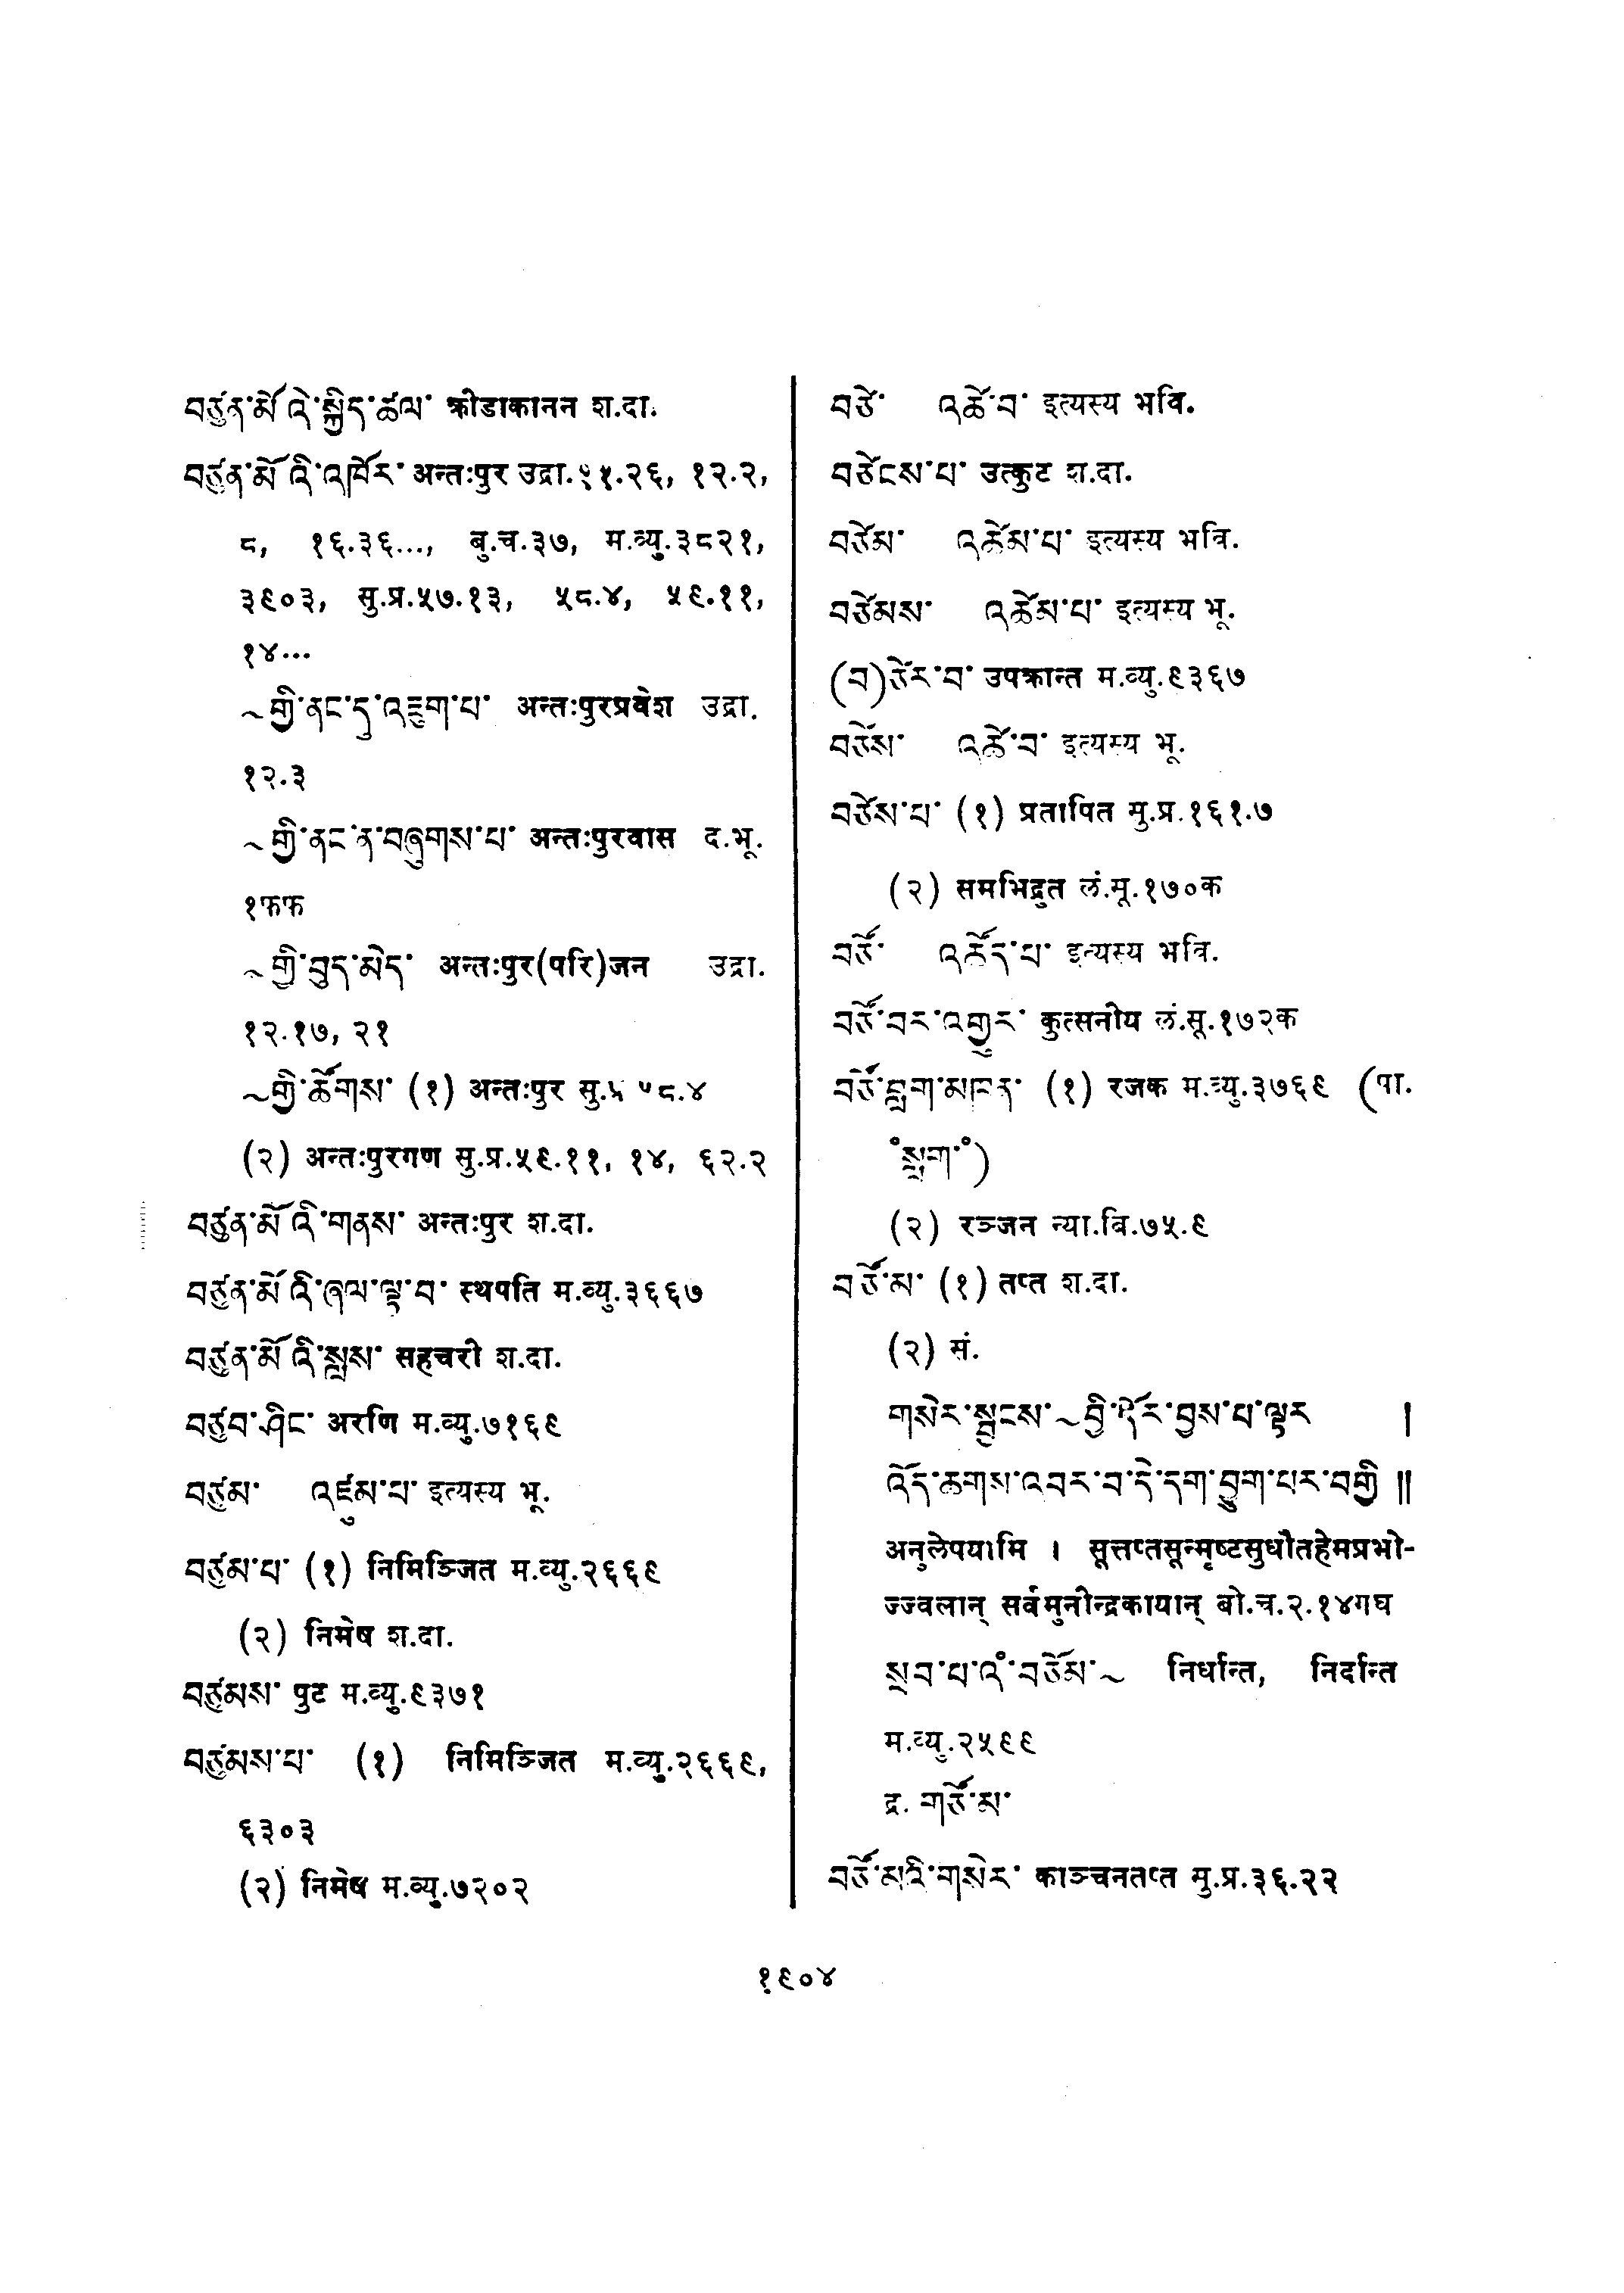 བཙུན་མོ་འི་སྐྱིད་ཚལ་ क्रीडाकानन श.दा.
བཙུན་མོ་འི་འཁོར་ अन्तःपुर उद्रा.११.२६, १२.२,
८, १६.३६..., बु.च.३७, म.व्यु.३८२१,
३९०३, सु.प्र.५७.१३, ५८.४, ५९.११,
१४...
~གྱི་ནང་དུ་འཇུག་པ་ अन्तःपुरप्रवेश उद्रा.
१२.३
~གྱི་ནང་ན་བཞུགས་པ་ अन्तःपुरवास द.भू.
१फफ
~གྱི་བུད་མེད་ अन्तःपुर(परि)जन उद्रा.
१२.१७, २१
~གྱི་ཚོགས་ (१) अन्तःपुर सु. ५८.४
(२) अन्तःपुरगण सु.प्र.५९.११, १४, ६२.२
བཙུན་མོ་འི་གནས་ अन्तःपुर श.दा.
བཙུན་མོ་འི་ཞལ་ལྟ་བ་ स्थपति म.व्यु.३६६७
བཙུན་མོ་འི་སླས་ सहचरी श.दा.
བཙུབ་ཤིང་ अरणि म.व्यु.७१६९
བཙུམ་ འཛུམ་པ་ इत्यस्य भू.
བཙུམ་པ་ (१) निमिञ्जित म.व्यु.२६६९
(२) निमेष श.दा.
བཙུམས་ पुट म.व्यु.९३७१
བཙུམས་པ་ (१) निमिञ्जित म.व्यु.२६६९,
६३०३
(२) निमेष म.व्यु.७२०२
བཙེ་ འཚེ་བ་ इत्यस्य भवि.
བཙེངས་པ་ उत्कुट श.दा.
བཙེམ་ འཚེམ་པ་ इत्यस्य भवि.
བཙེམས་ འཚེམ་པ་ इत्यस्य भू.
(བ)ཙེར་བ་ उपक्रान्त म.व्यु.९३६७
བཙེས་ འཚེ་བ་ इत्यस्य भू.
བཙེས་པ་ (१) प्रतापित सु.प्र.१६१.७
(२) समभिद्रुत लं.सू.१७०क
བཙོ་ འཚོད་པ་ इत्यस्य भवि.
བཙོ་བར་འགྱུར་ कुत्सनीय लं.सू.१७२क
བཙོ་བླག་མཁན་ (१) रजक म.व्यु.३७६९ (पा.
°སླག་°)
(२) रञ्जन न्या.बि.७५.९
བཙོ་མ་ (१) तप्त श.दा.
(२) सं.
གསེར་སྦྱངས་~བྱི་དོར་བྱས་པ་ལྟར །
འོད་ཆགས་འབར་བ་དེ་དག་བྱུག་པར་བགྱི ॥
अनुलेपयामि । सूत्तप्तसून्मृष्टसुधौतहेमप्रभो-
ज्ज्वलान् सर्वमुनीन्द्रकायान् बो.च.२.१४गघ
སྲབ་པ་འཾ་བཙོམ་~ निर्धान्त, निर्दान्त
म.व्यु.२५९९
द्र. གཙོ་མ་
བཙོ་མའི་གསེར་ काञ्चनतप्त सु.प्र.३६.२२
१९०४